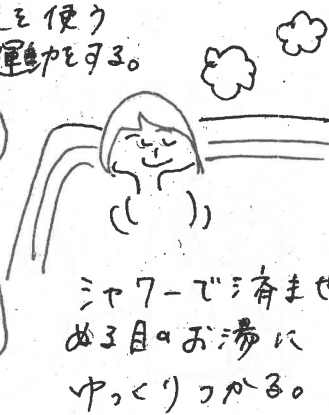 を使う
運動をする。
シャワーで済ませ
ぬる目のお湯に
ゆっくりつかる。